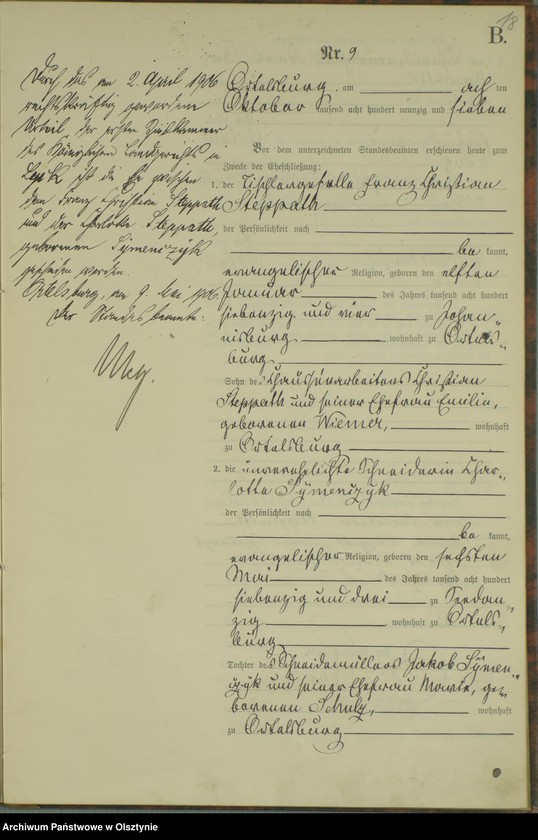 18
B.
Nr. 9
Ortelsburg, am acht ten
Oktober tausend acht hundert neunzig und sieben
Vor dem unterzeichneten Standesbeamten erschienen heute zum
Zwecke der Eheschließung:
1. der Tischlergeselle Franz Christian
Steppath
der Persönlichkeit nach
be kannt,
evangelischer Religion, geboren den elften
Januar des Jahres tausend acht hundert
siebenzig und vier zu Johan„
nisburg, wohnhaft zu Ortels„
burg
Sohn des Christian
Steppath und seiner Ehefrau Emilie,
geborenen Wiemer, wohnhaft
zu Ortelsburg
2. die unverehelichte Schneiderin Char„
lotte Symenczyk
der Persönlichkeit nach
be kannt,
evangelischer Religion, geboren den sechsten
Mai des Jahres tausend acht hundert
siebenzig und drei zu Seedan„
zig, wohnhaft zu Ortels„
burg,
Tochter des Schneidemüllers Jakob Symen„
czyk und seiner Ehefrau Marie, ge„
borenen Schulz, wohnhaft
zu Ortelsburg
Durch das am 2. April 1906
rechtskräftig gewordene
Urteil der ersten Zivilkammer
des Königlichen Landgerichts in
Lyck ist die Ehe zwischen
dem Franz Christian Steppath
und der Charlotte Steppath,
geborenen Symenczyk
geschieden worden.
Ortelsburg, am 9. Mai 1906.
Der Standesbeamte.
Archiwum Państwowe w Olsztynie